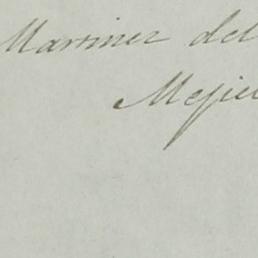 Martinez del
Mejic